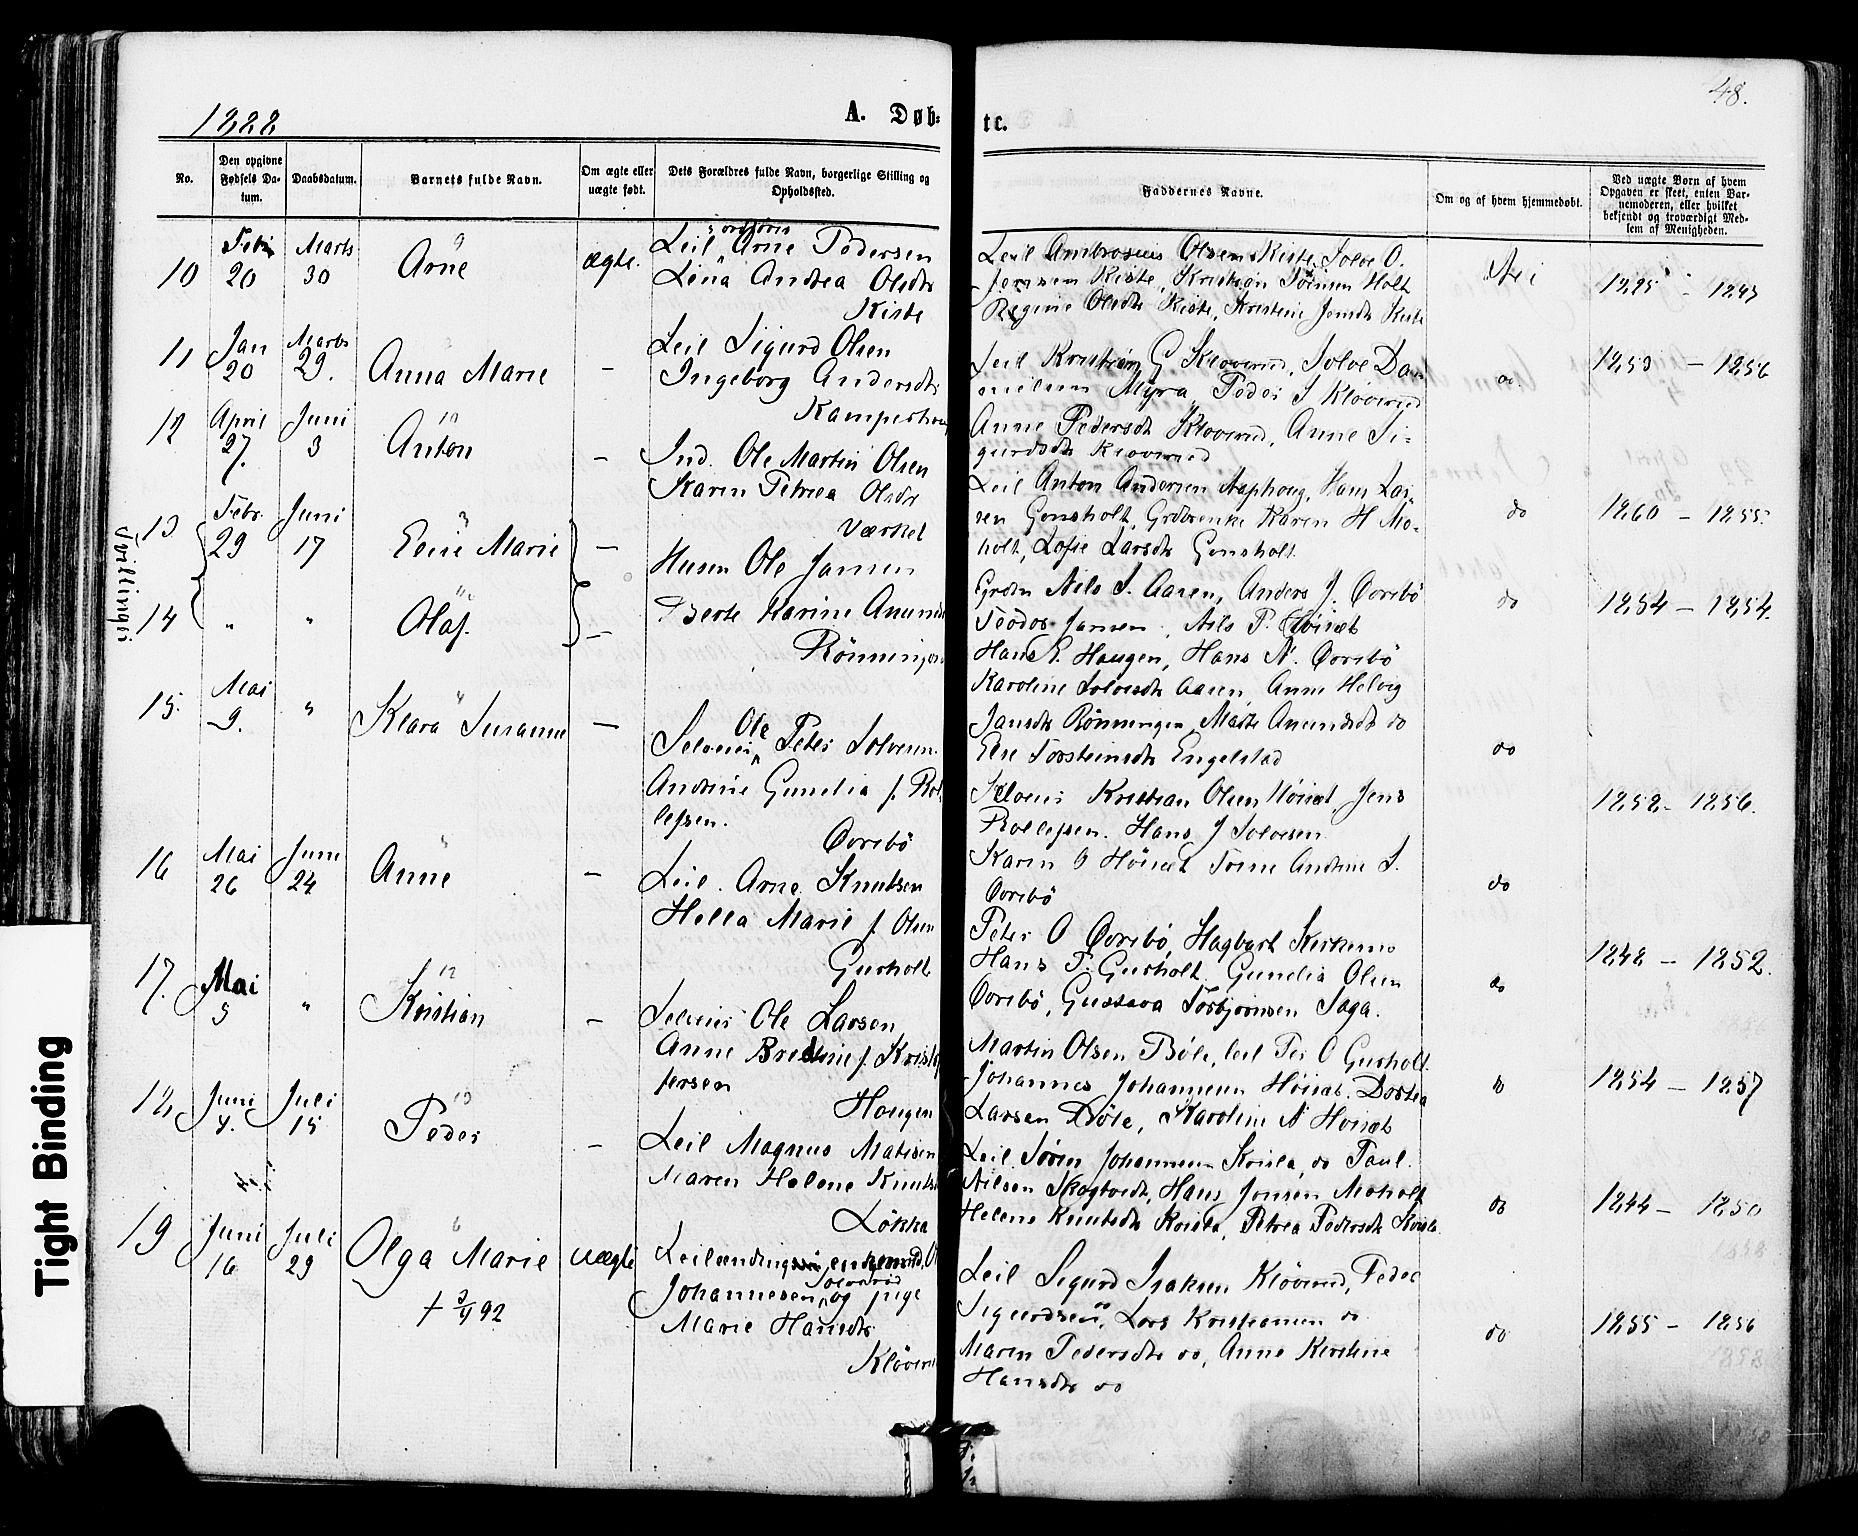 48.
1888
A. Døb-
te.
No.
Den opgivne Fødsels Da-tum.
Daabsdatum.
Barnets fulde Navn.
Om ægte eller uægte født.
Dets Forældres fulde Navn, borgerlige Stilling og Opholdssted.
Faddernes Navne.
Om og af hvem hjemmedøbt.
Ved uægte Børn af hvem Opgaven er skeet, enten Bar-nemoderen, eller hvilket bekjendt og troværdigt Med-lem af Menigheden.
10
Febr 20
Marts 30
Arne
ægte.
Leil Arne Pedersen
Lena Andrea Olsdtr
Kiste
Leil Ambrosius Olsen Kiste, Solve O.
Jensen Kiste, Kristian Holt
Regine Olsdtr Kiste, Kristine Jensdtr Kiste
Nei
11
Jan 20
Marts 29.
Anna Marie
-
Leil Sigurd Olsen
Ingeborg Andersdtr
Leil Kristian G. Kloverud, Solve Da-
nielsen Myra, Peder S Kloverud
Anne Pedersdt Kloverud, Anne Si-
gurdsdt Kloverud
do
1853 - 1856
12
April 27.
Juni 3
Anton
-
Ind. Ole Martin Olsen
Karen Petrea Olsdtr
Værket
Leil Anton Andersen Aaphoug, Hans Lar-
sen Gonsholt, Grdbrenke Karen H Mo-
holt, Lofie Larsdtr Gonsholt
do
1860 - 1855.
Tvillinger
13
Febr. 29
Juni 17
Eline Marie
-
Husm Ole Jansen
Berte Karine Anunds
Rönningen
14
"
"
Olaf.
-
Grdm Nils S. Aaren, Anders J. Ovrebö
Teodor Jansen, Nils P. Höisæt
Hans E. Haugen, Hans N. Ovrebö
Karoline Solvesdt Aaren, Anne Helvig
Jansdtr Rönningen, Marte Anundsdt do
Else Torsteinsdt Engelstad
do
1854 - 1854.
15.
Mai 9.
"
Klara Susanne
-
Selveier Ole Peter Solvesen
Andrine Gunelia f. Rol-
lefsen.
Ovrebö
Selveier Kristian Olsen Höisæt, Jens
Rollefsen. Hans J Solvesen
Karen O Höisæt Trine Andrine S.
Ovrebö
do
1858 - 1856.
16
Mai 26
Juni 24
Anne
-
Leil. Arne Knutsen
Hella Marie f. Olsen
Gusholt
Peter O Ovrebö, Hagbart Kirkemo
Hans P. Gusholt. Gunelia Olsen
Ovrebö, Gustava Torbjørnsen Saga.
do
1848 - 1852.
17.
Mai 5
"
Kristian
-
Selveier Ole Larsen
Anne Bredine f. Kristof-
fersen
Haugen
Martin Olsen Böle, leil Per O Gusholt.
Johannes Johannesen Höisæt. Dortea
Larsen Böle, Karoline N Höisæt
do
1854 - 1857
18
Juni 4.
Juli 15
Peder
-
Leil Magnus Matisen
Maren Helene Knuts
Løkka
Leil. Søren Johannesen Kvisla, do Paul
Nilsen Skogtvedt, Hans Jensen Moholt
Helene Knutsdt Kvisla, Petrea Pedersdt Kvisla
do
1844 - 1850
19
Juni 16
Juli 29
Olga Marie
uægte
† 3/9 92
Leilændings enkemand, O
Johannesen og pige
Marie Hansdtr
Kløverud
Leil Sigurd Isaksen Kløverud, Peder
Sigurdsen do, Lars Kristiansen do
Maren Pedersdtr do, Anne Kirstine
Hansdtr do
do
1855 - 1856
Tight Binding